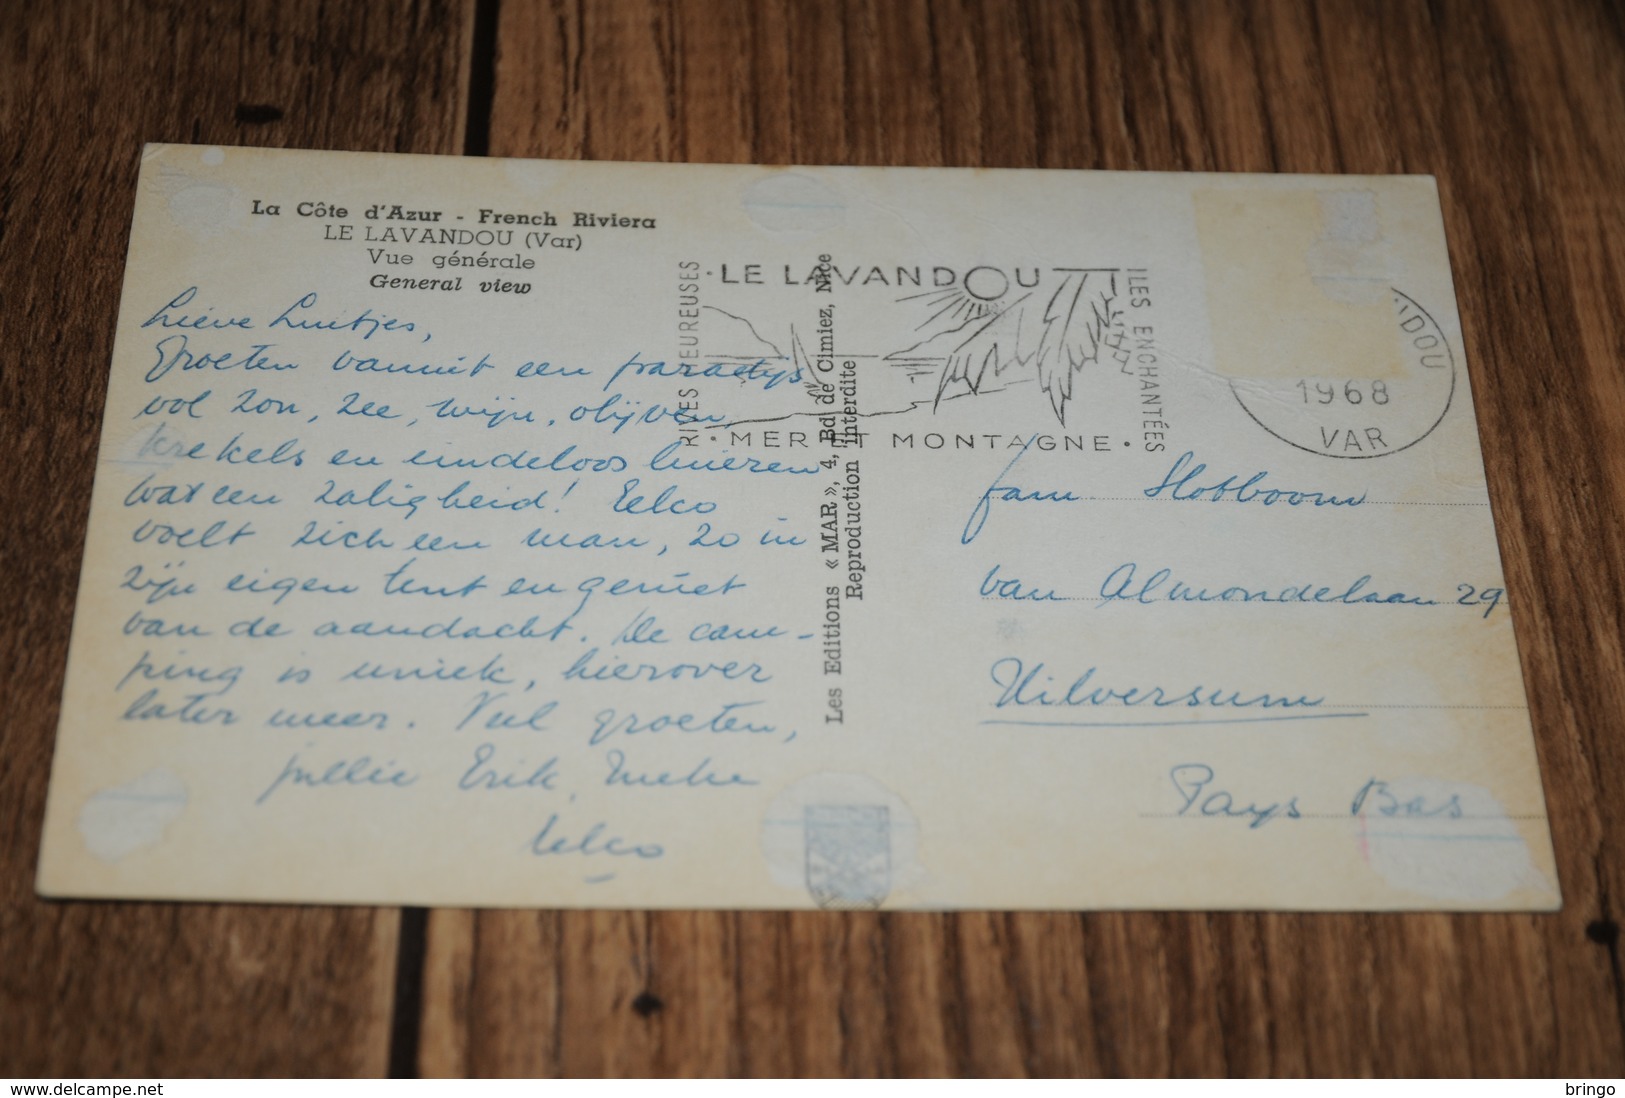 La Côte d'Azur - French Riviera
LE LAVANDOU (Var)
Vue générale
General view
Lieve Luitjes,
Groeten vanuit een paradijs
vol zon, zee, wijn, olijven,
krekels en eindeloos luieren
wat een zaligheid! Eelco
voelt zich een man, zo in
zijn eigen tent en geniet
van de aandacht. De cam-
ping is uniek, hierover
later meer. Veel groeten,
jullie Erik,
Eelco
Les Editions « MAR », 4, Bd de Cimiez, Nice
Reproduction Interdite
RIVES HEUREUSES
LE LAVANDOU
MER ET MONTAGNE
ILES ENCHANTÉES
NDOU
1968
VAR
fam. Slotboom
van Almondelaan 29
Hilversum
Pays Bas
http://www.delcampe.net
bringo